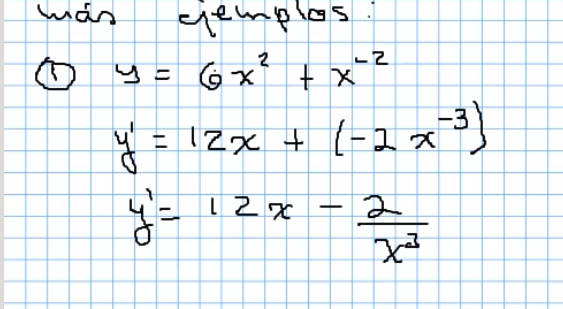 más ejemplos:
① y = 6x² + x⁻²
y' = 12x + (-2x⁻³)
y' = 12x - 2/x³